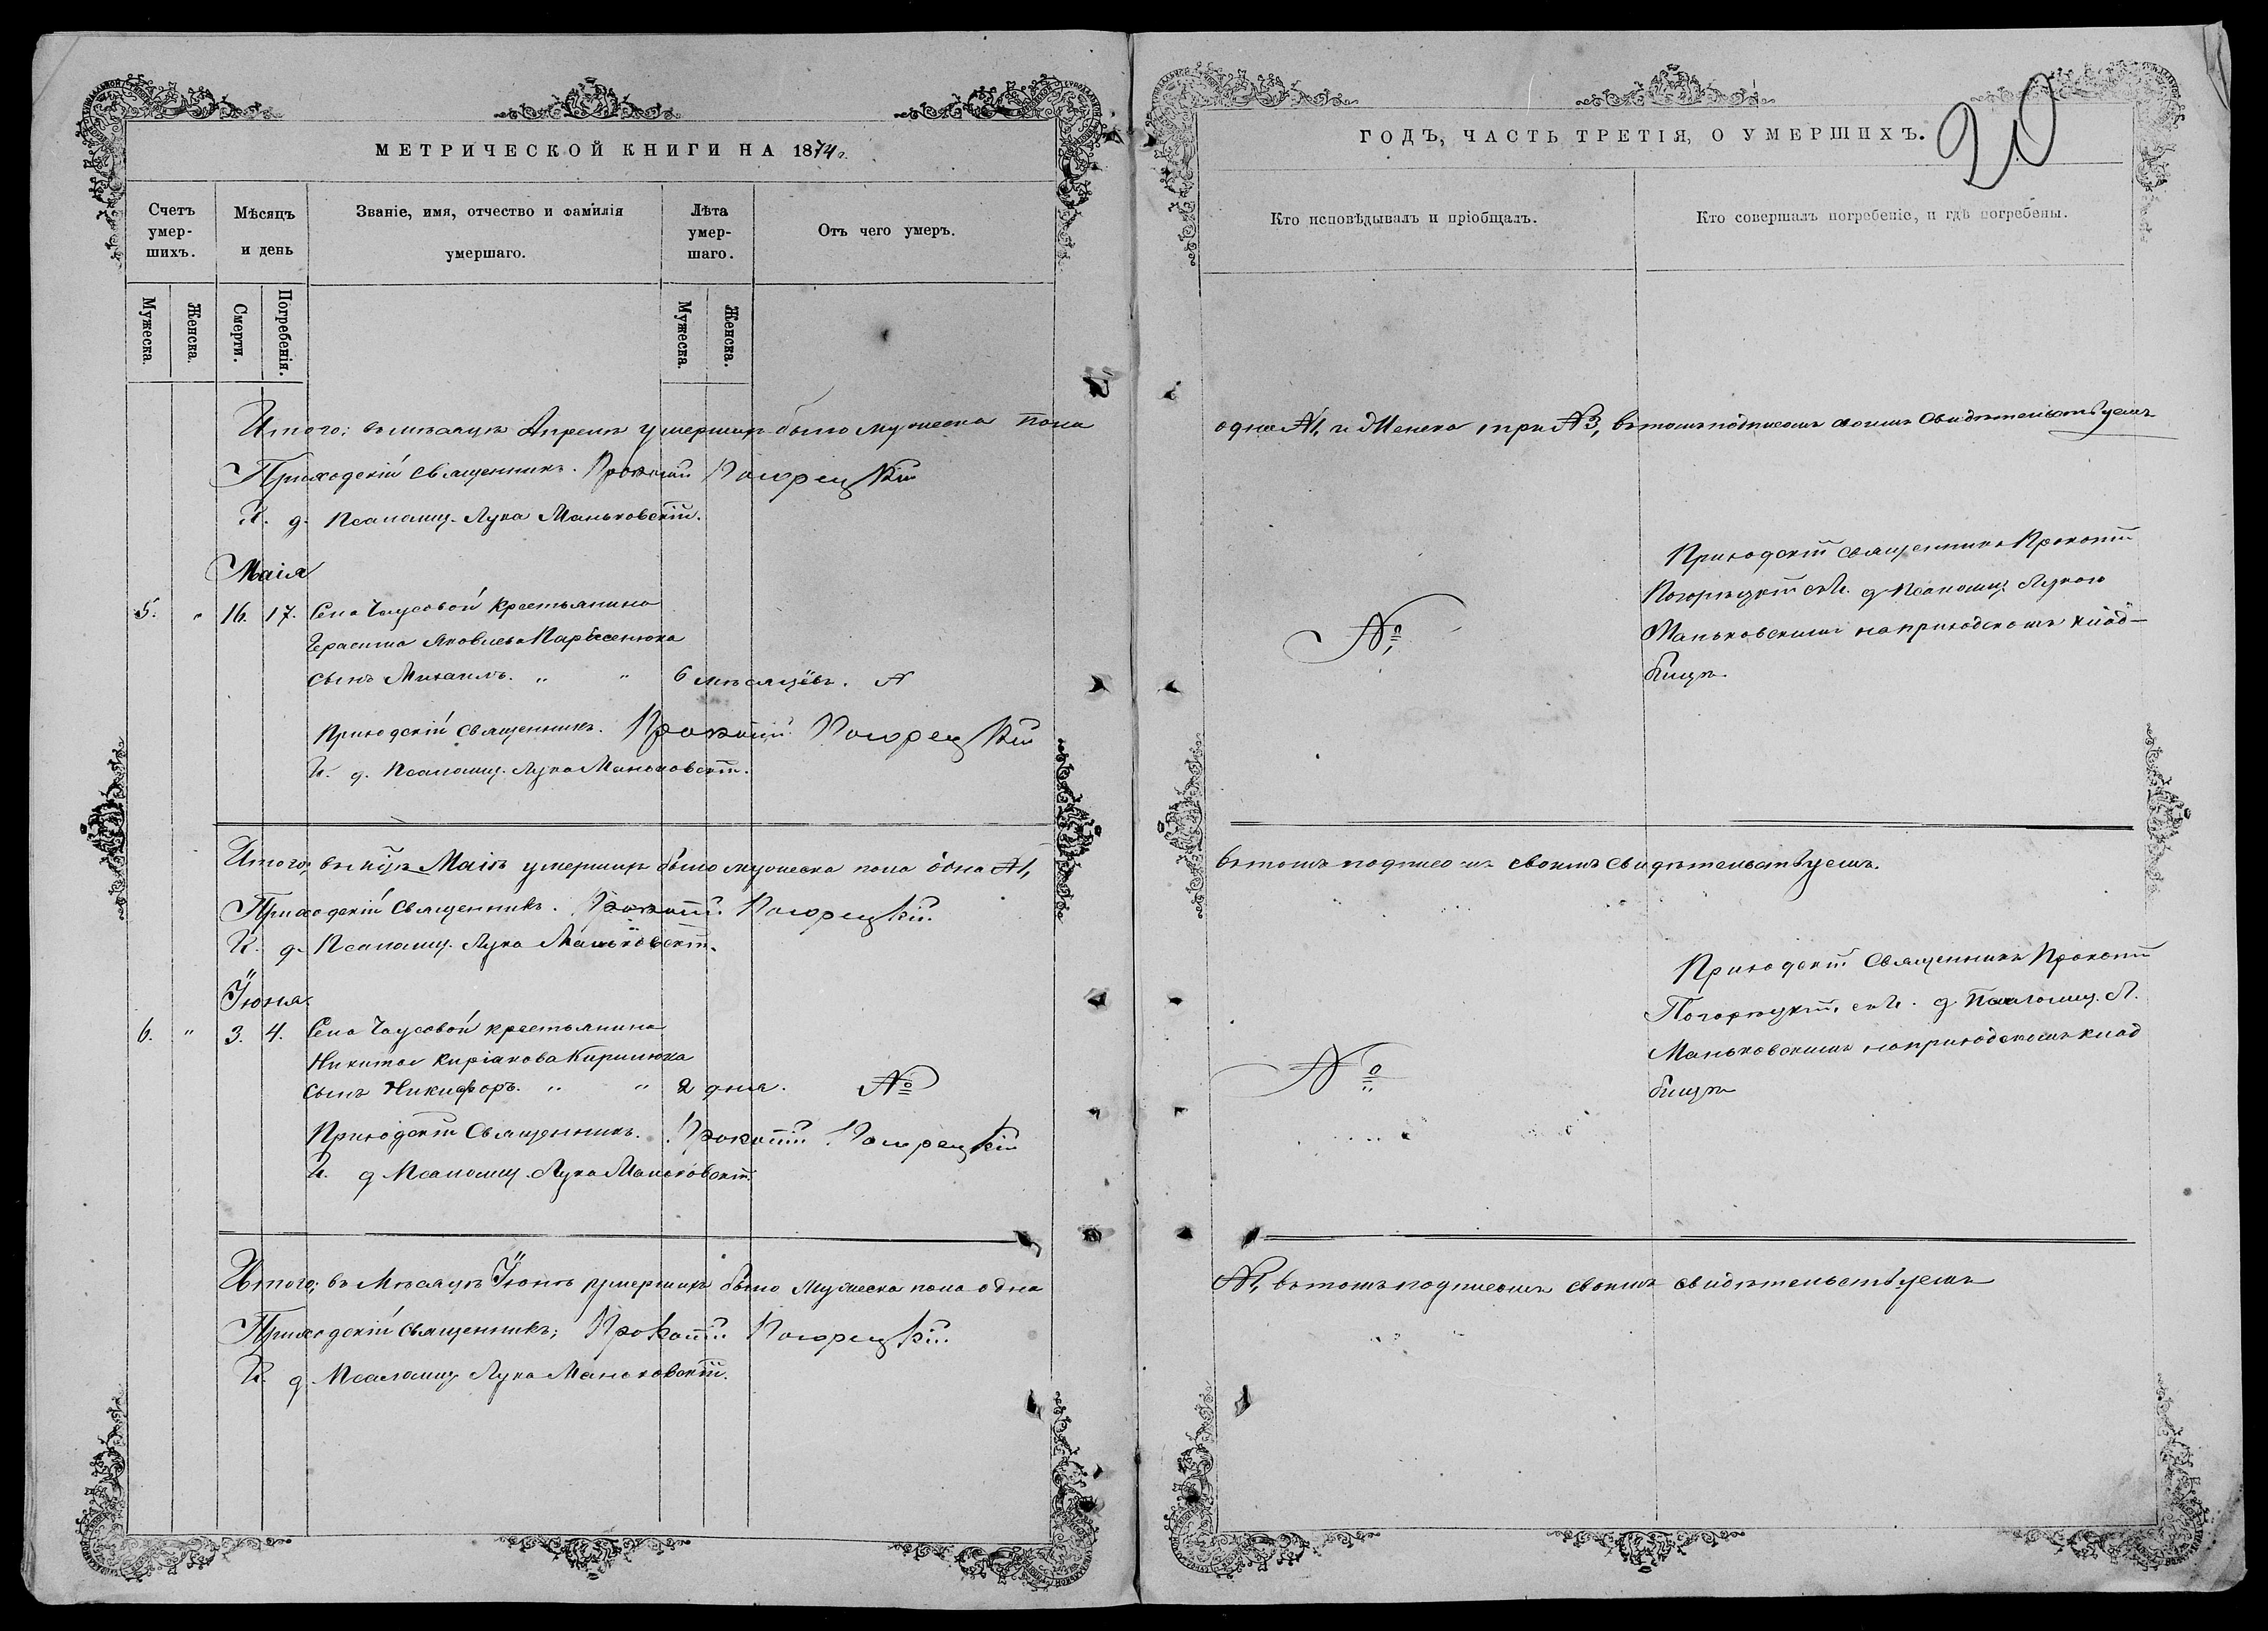 МЕТРИЧЕСКОЙ КНИГИ НА 1874 г.
Счетъ умер-шихъ.
Мѣсяцъ и день
Званіе, имя, отчество и фамилія умершаго.
Лѣта умер-шаго.
Отъ чего умеръ.
Мужеска.
Женска.
Смерти.
Погребенія.
Мужеска.
Женска.
Итого; въ мѣсяцѣ Апрелѣ умершихъ было мужеска пола
Приходскій Священникъ. Прокопій Погорецкій
И. д. Псаломщ. Лука Маньковскій.
Маія
5. " 16. 17. Села Чаусовой крестьянина
Герасима Яковлева Парѳсенюка
сынъ Михаилъ. " " 6 мѣсяцёвъ. №
Приходскій священникъ. Прокопій Погорецкій
И. д. Псаломщ. Лука Маньковскій.
Итого; въ Маіѣ умершихъ было мужеска пола одна №1,
Приходскій Священникъ. Прокопій Погорецкій.
И. д. Псаломщ. Лука Маньковскій.
Іюня.
6. " 3. 4. Села Чаусовой крестьянина
Никиты Киріакова Кирилюка
сынъ Никифоръ. " " 2 дня. №
Приходскій Священникъ. Прокопій Погорецкій
И. д. Псаломщ. Лука Маньковскій.
Итого; въ Мѣсяцѣ Іюнѣ умершихъ было Мужеска пола одна
Приходскій священникъ; Прокопій Погорецкій.
И. д. Псаломщ. Лука Маньковскій.
20
ГОДЪ, ЧАСТЬ ТРЕТІЯ, О УМЕРШИХЪ.
Кто исповѣдывалъ и пріобщалъ.
Кто совершалъ погребеніе, и гдѣ погребены.
одна №1, и Женска, три №3, въ томъ подписомъ своимъ свидѣтельствуемъ
Приходскій священникъ Прокопій
Погорѣцкій съ И. д. Псаломщ. Лукою
№
Маньковскимъ на приходскомъ клад-
бищѣ.
въ томъ подписомъ своимъ свидѣтельствуемъ.
Приходскій Священникъ Прокопій
Погорѣцкій, съ И. д. Псаломщ. Л.
Маньковскимъ на приходскомъ клад
№
бищѣ
№1, въ томъ подписомъ своимъ свидѣтельствуемъ